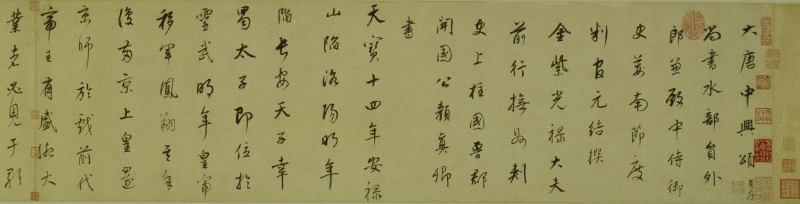 大唐中興頌 有序
尚書水部員外
郎兼殿中侍御
史荊南節度
判官元結撰
金紫光祿大夫
前行撫州刺
史上柱國魯郡
開國公顏真卿
書
天寶十四年安祿
山陷洛陽明年
陷長安天子幸
蜀太子即位於
靈武明年皇帝
移軍鳳翔其年
復兩京上皇還
京師於戲前代
帝王有盛德大
業者必見于歌